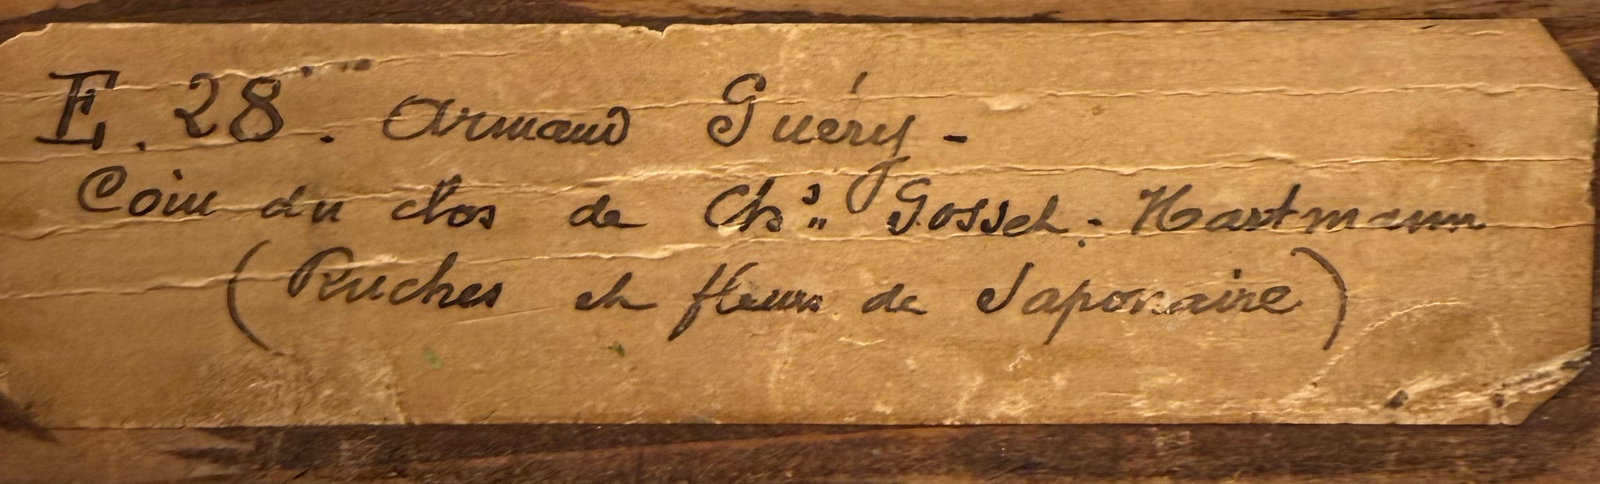 E. 28. Armand Guéry -
Coin du clos de Chs. Gosset-Hartmann
(Ruches et fleurs de Saponaire)